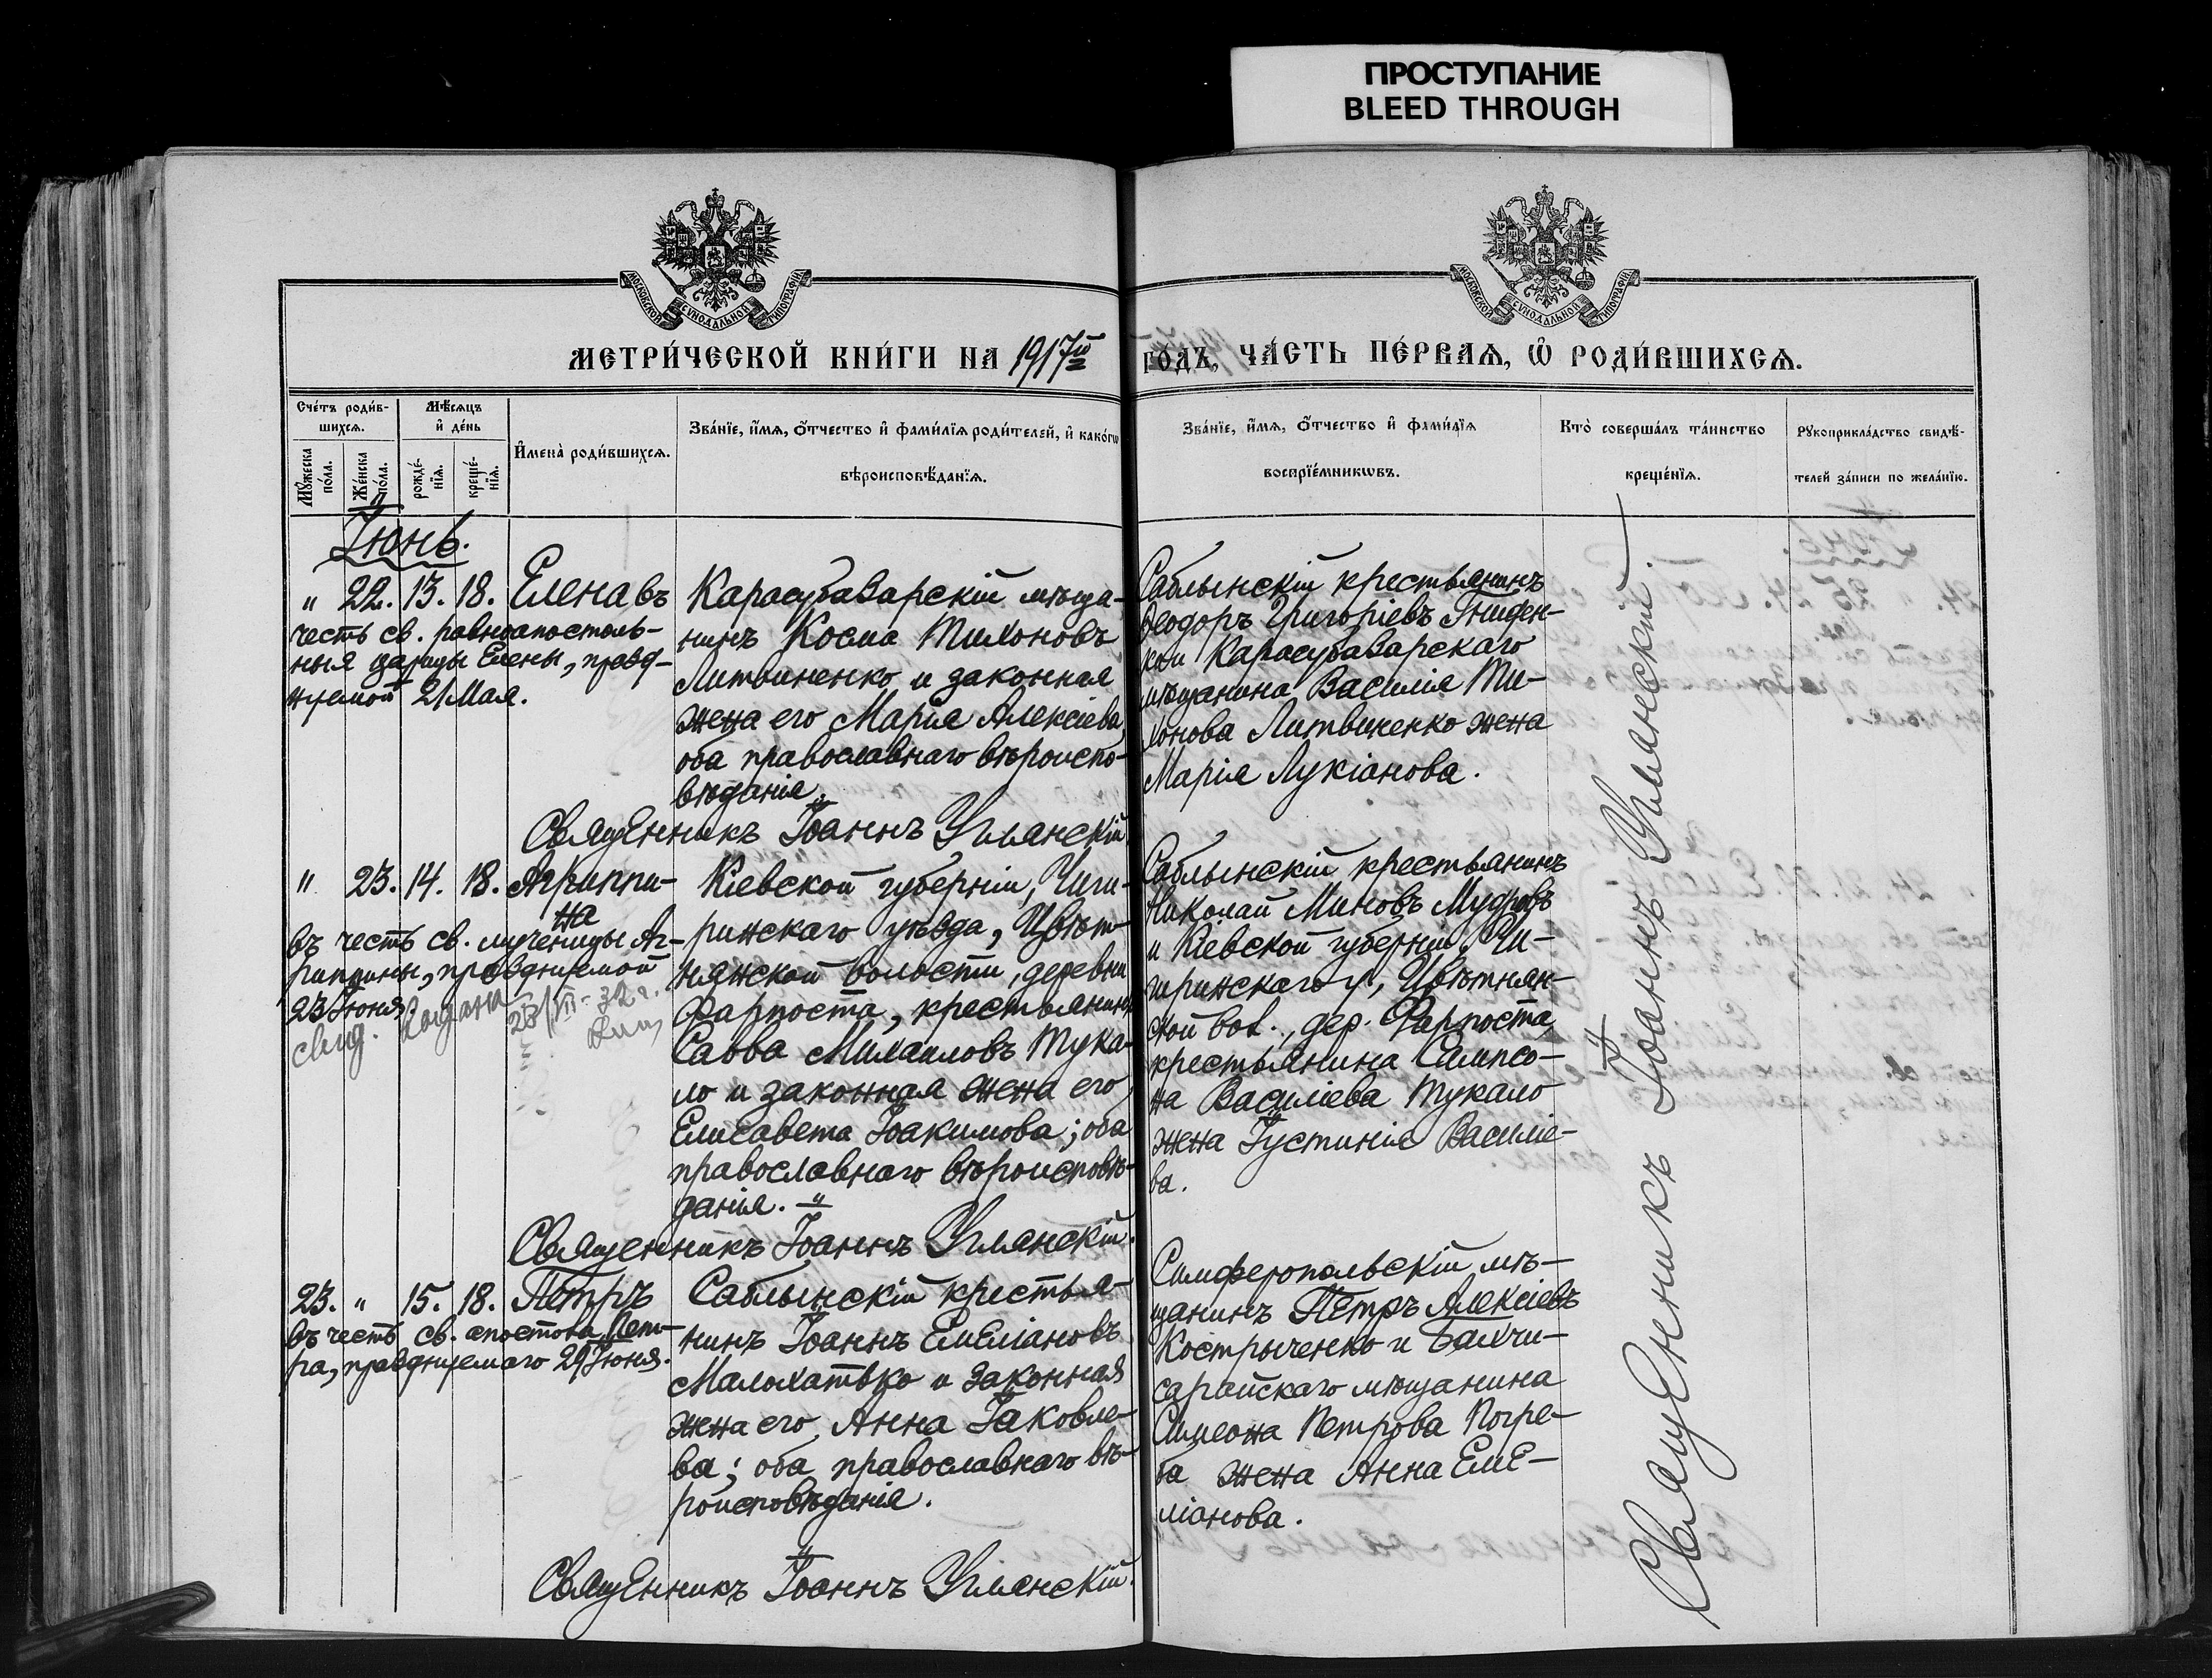 ПРОСТУПАНИЕ
BLEED THROUGH
МОСКОВСКОЙ СУНОДАЛЬНОЙ ТИПОГРАФІИ
МОСКОВСКОЙ СУНОДАЛЬНОЙ ТИПОГРАФІИ
МЕТРИ́ЧЕСКОЙ КНИ́ГИ НА 1917й
ГО́ДЪ, ЧА́СТЬ ПЕ́РВАѦ, Ѡ҆ РОДИ́ВШИХСѦ.
Сче́тъ роди́в-
шихсѧ.
Мѣ́сѧцъ
и҆ де́нь
Мꙋ́жеска
по́ла.
Же́нска
по́ла.
рожде́-
нїѧ.
креще́-
нїѧ.
И҆мена̀ роди́вшихсѧ.
Зва́нїе, и҆́мѧ, ѻ҆́тчество и҆ фами́лїѧ роди́телей, и҆ како́гѡ
вѣроисповѣ́данїѧ.
Зва́нїе, и҆́мѧ, ѻ҆́тчество и҆ фами́лїѧ
воспрїе́мникѡвъ.
Кто̀ соверша́лъ та́инство
креще́нїѧ.
Рꙋкоприкла́дство свидѣ́-
телей за́писи по жела́нїю.
Іюнь.
" 22. 13. 18. Елена въ
честь св. равноапостоль-
ныя царицы Елены, празд-
нуемой 21 Мая.
Карасубазарскій мѣща-
нинъ Косма Тихоновъ
Литвиненко и законная
жена его Марія Алексіева,
оба православнаго вѣроиспо-
вѣданія.
Священникъ Іоаннъ Углянскій
Саблынскій крестьянинъ
Ѳеодоръ Григоріевъ
Карасубазарскаго
мѣщанина Василія Ти-
хонова Литвиненко жена
Марія Лукіанова.
" 23. 14. 18. Агриппи-
на
въ честь св. мученицы Аг-
риппины, празднуемой
23 Іюня.
свид. 23/VII-32 г.
Кіевской губерніи, Чиги-
ринскаго уѣзда, Цвѣт-
нянской волости, деревни
Фарпоста, крестьянинъ
Савва Михаиловъ Тука-
ло и законная жена его
Елисавета Іоакимова; оба
православнаго вѣроисповѣ-
данія.
Священникъ Іоаннъ Углянскій.
Саблынскій крестьянинъ
Николай Миновъ Мудровъ
и Кіевской губерніи, Чи-
гиринскаго у, Цвѣтнян-
ской вол., дер. Фарпоста,
крестьянина Сампсо-
на Василіева Тукало
жена Іустинія Василіе-
ва.
23. " 15. 18. Петръ
въ честь св. апостола Пет-
ра, празднуемаго 29 Іюня.
Саблынскій крестья-
нинъ Іоаннъ Емеліановъ
Малохатько и законная
жена его Анна Іаковле-
ва; оба православнаго вѣ-
роисповѣданія.
Священникъ Іоаннъ Углянскій.
Симферопольскій мѣ-
щанинъ Петръ Алексіевъ
Костырченко и Бахчи-
сарайскаго мѣщанина
Симеона Петрова Погре-
ба жена Анна Еме-
ліанова.
Священникъ Іоаннъ Углянскій.